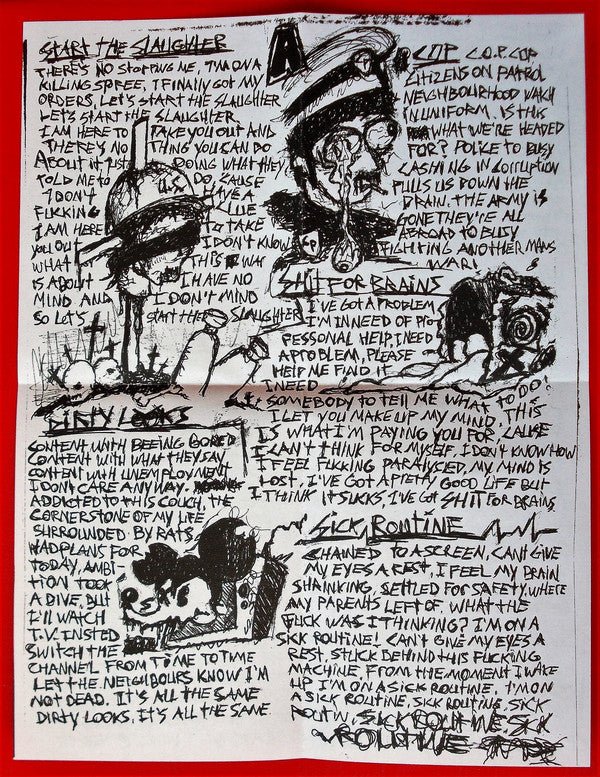 START THE SLAUGHTER
THERE'S NO STOPPING ME, I'M ON A
KILLING SPREE, I FINALLY GOT MY
ORDERS, LET'S START THE SLAUGHTER
LETS START THE SLAUGHTER
I AM HERE TO TAKE YOU OUT AND
THERE'S NO THING YOU CAN DO
ABOUT IT JUST DOING WHAT THEY
TOLD ME TO DO, CAUSE
I DON'T HAVE A
FUCKING CLUE
I AM HERE TO TAKE
YOU OUT I DON'T KNOW
WHAT THIS WAR
IS ABOUT I HAVE NO
MIND AND I DON'T MIND
SO LET'S START THE SLAUGHTER
U.S.
A
COP C.O.P. COP
CITIZENS ON PATROL
NEIGHBOURHOOD WATCH
IN UNIFORM. IS THIS
WHAT WE'RE HEADED
FOR? POLICE TO BUSY
CASHING IN CORRUPTION
PULLS US DOWN THE
DRAIN. THE ARMY IS
GONE THEY'RE ALL
ABROAD TO BUSY
FIGHTING ANOTHER MANS
WAR!
SHIT FOR BRAINS
I'VE GOT A PROBLEM
I'M IN NEED OF PROF
FESSONAL HELP, I NEED
A PROBLEM, PLEASE
HELP ME FIND IT
I NEED
SOMEBODY TO TELL ME WHAT TO DO?
I LET YOU MAKE UP MY MIND, THIS
IS WHAT I'M PAYING YOU FOR, CAUSE
I CAN'T THINK FOR MYSELF, I DON'T KNOW HOW
I FEEL FUCKING PARALYSED, MY MIND IS
LOST, I'VE GOT A GOOD LIFE BUT
I THINK IT SUCKS, I'VE GOT SHIT FOR BRAINS
DIRTY LOOKS
CONTENT WITH BEEING BORED
CONTENT WITH WHAT THEY SAY
CONTENT WITH UNEMPLOYMENT
I DON'T CARE ANYWAY.
ADDICTED TO THIS COUCH, THE
CORNERSTONE OF MY LIFE
SURROUNDED BY RATS
HAD PLANS FOR
TODAY, AMBI-
TION TOOK
A DIVE, BUT
I'LL WATCH
T.V. INSTED
SWITCH THE
CHANNEL FROM TIME TO TIME
LET THE NEIGHBOURS KNOW I'M
NOT DEAD. IT'S ALL THE SAME
DIRTY LOOKS, IT'S ALL THE SAME
SICK ROUTINE
CHAINED TO A SCREEN, CAN'T GIVE
MY EYES A REST, I FEEL MY BRAIN
SHRINKING, SETTLED FOR SAFETY, WHERE
MY PARENTS LEFT OF. WHAT THE
FUCK WAS I THINKING? I'M ON A
SICK ROUTINE! CAN'T GIVE MY EYES A
REST, STUCK BEHIND THIS FUCKING
MACHINE, FROM THE MOMENT I WAKE
UP I'M ON A SICK ROUTINE, I'M ON
A SICK ROUTINE, SICK ROUTINE, SICK
ROUTIN, SICK ROUTINE SICK
ROUTINE